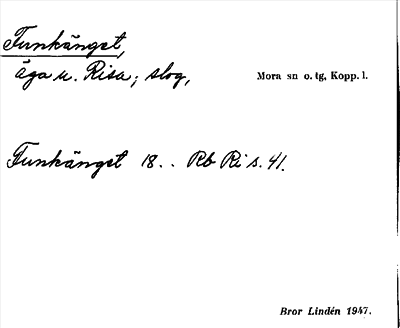 Funkänget,
äga u. Risa; slog, Mora sn o. tg, Kopp. l.
Funkänget 18. . Rb Ri s. 41.
Bror Lindén 1947.